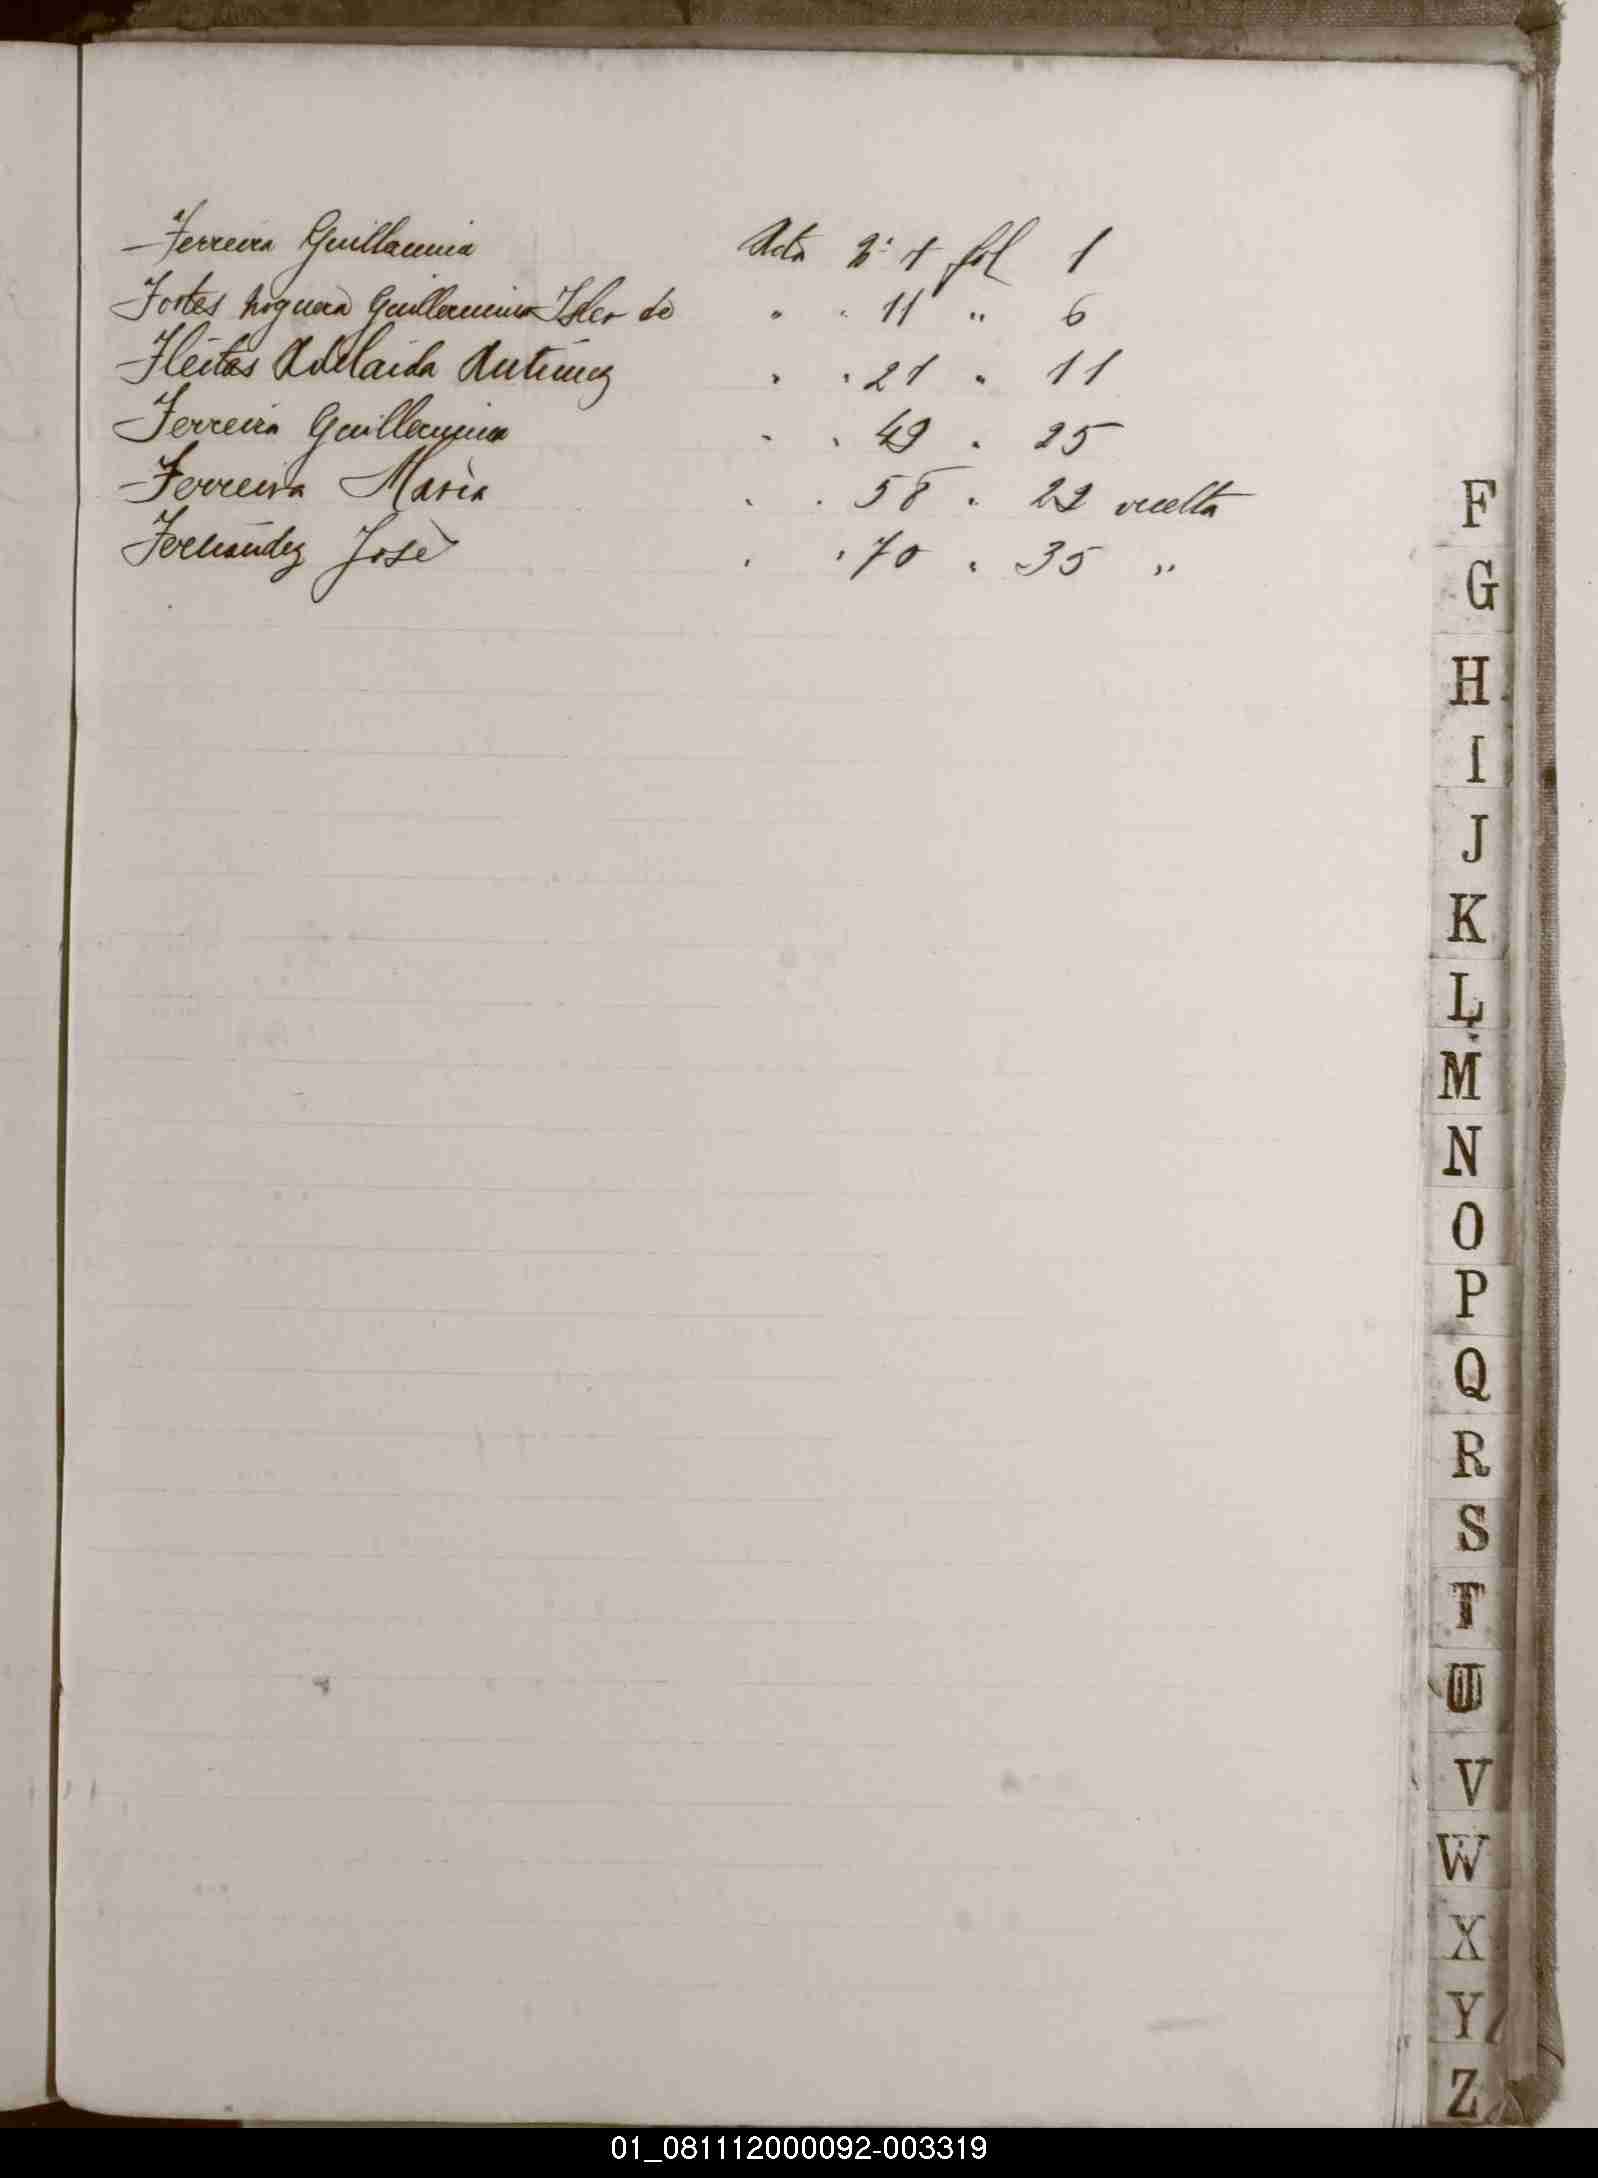 Ferreira Guillermina Acta Nº 1 fol 1
Fortes Noguera Guillermina Isler de " " 11 " 6
Fleitas Adelaida Antúnez " " 21 " 11
Ferreira Guillermina " " 49 " 25
Ferreira María " " 58 " 29 vuelta
Fernández José " " 70 " 35 "
F
G
H
I
J
K
L
M
N
O
P
Q
R
S
T
U
V
W
X
Y
Z
01_081112000092-003319